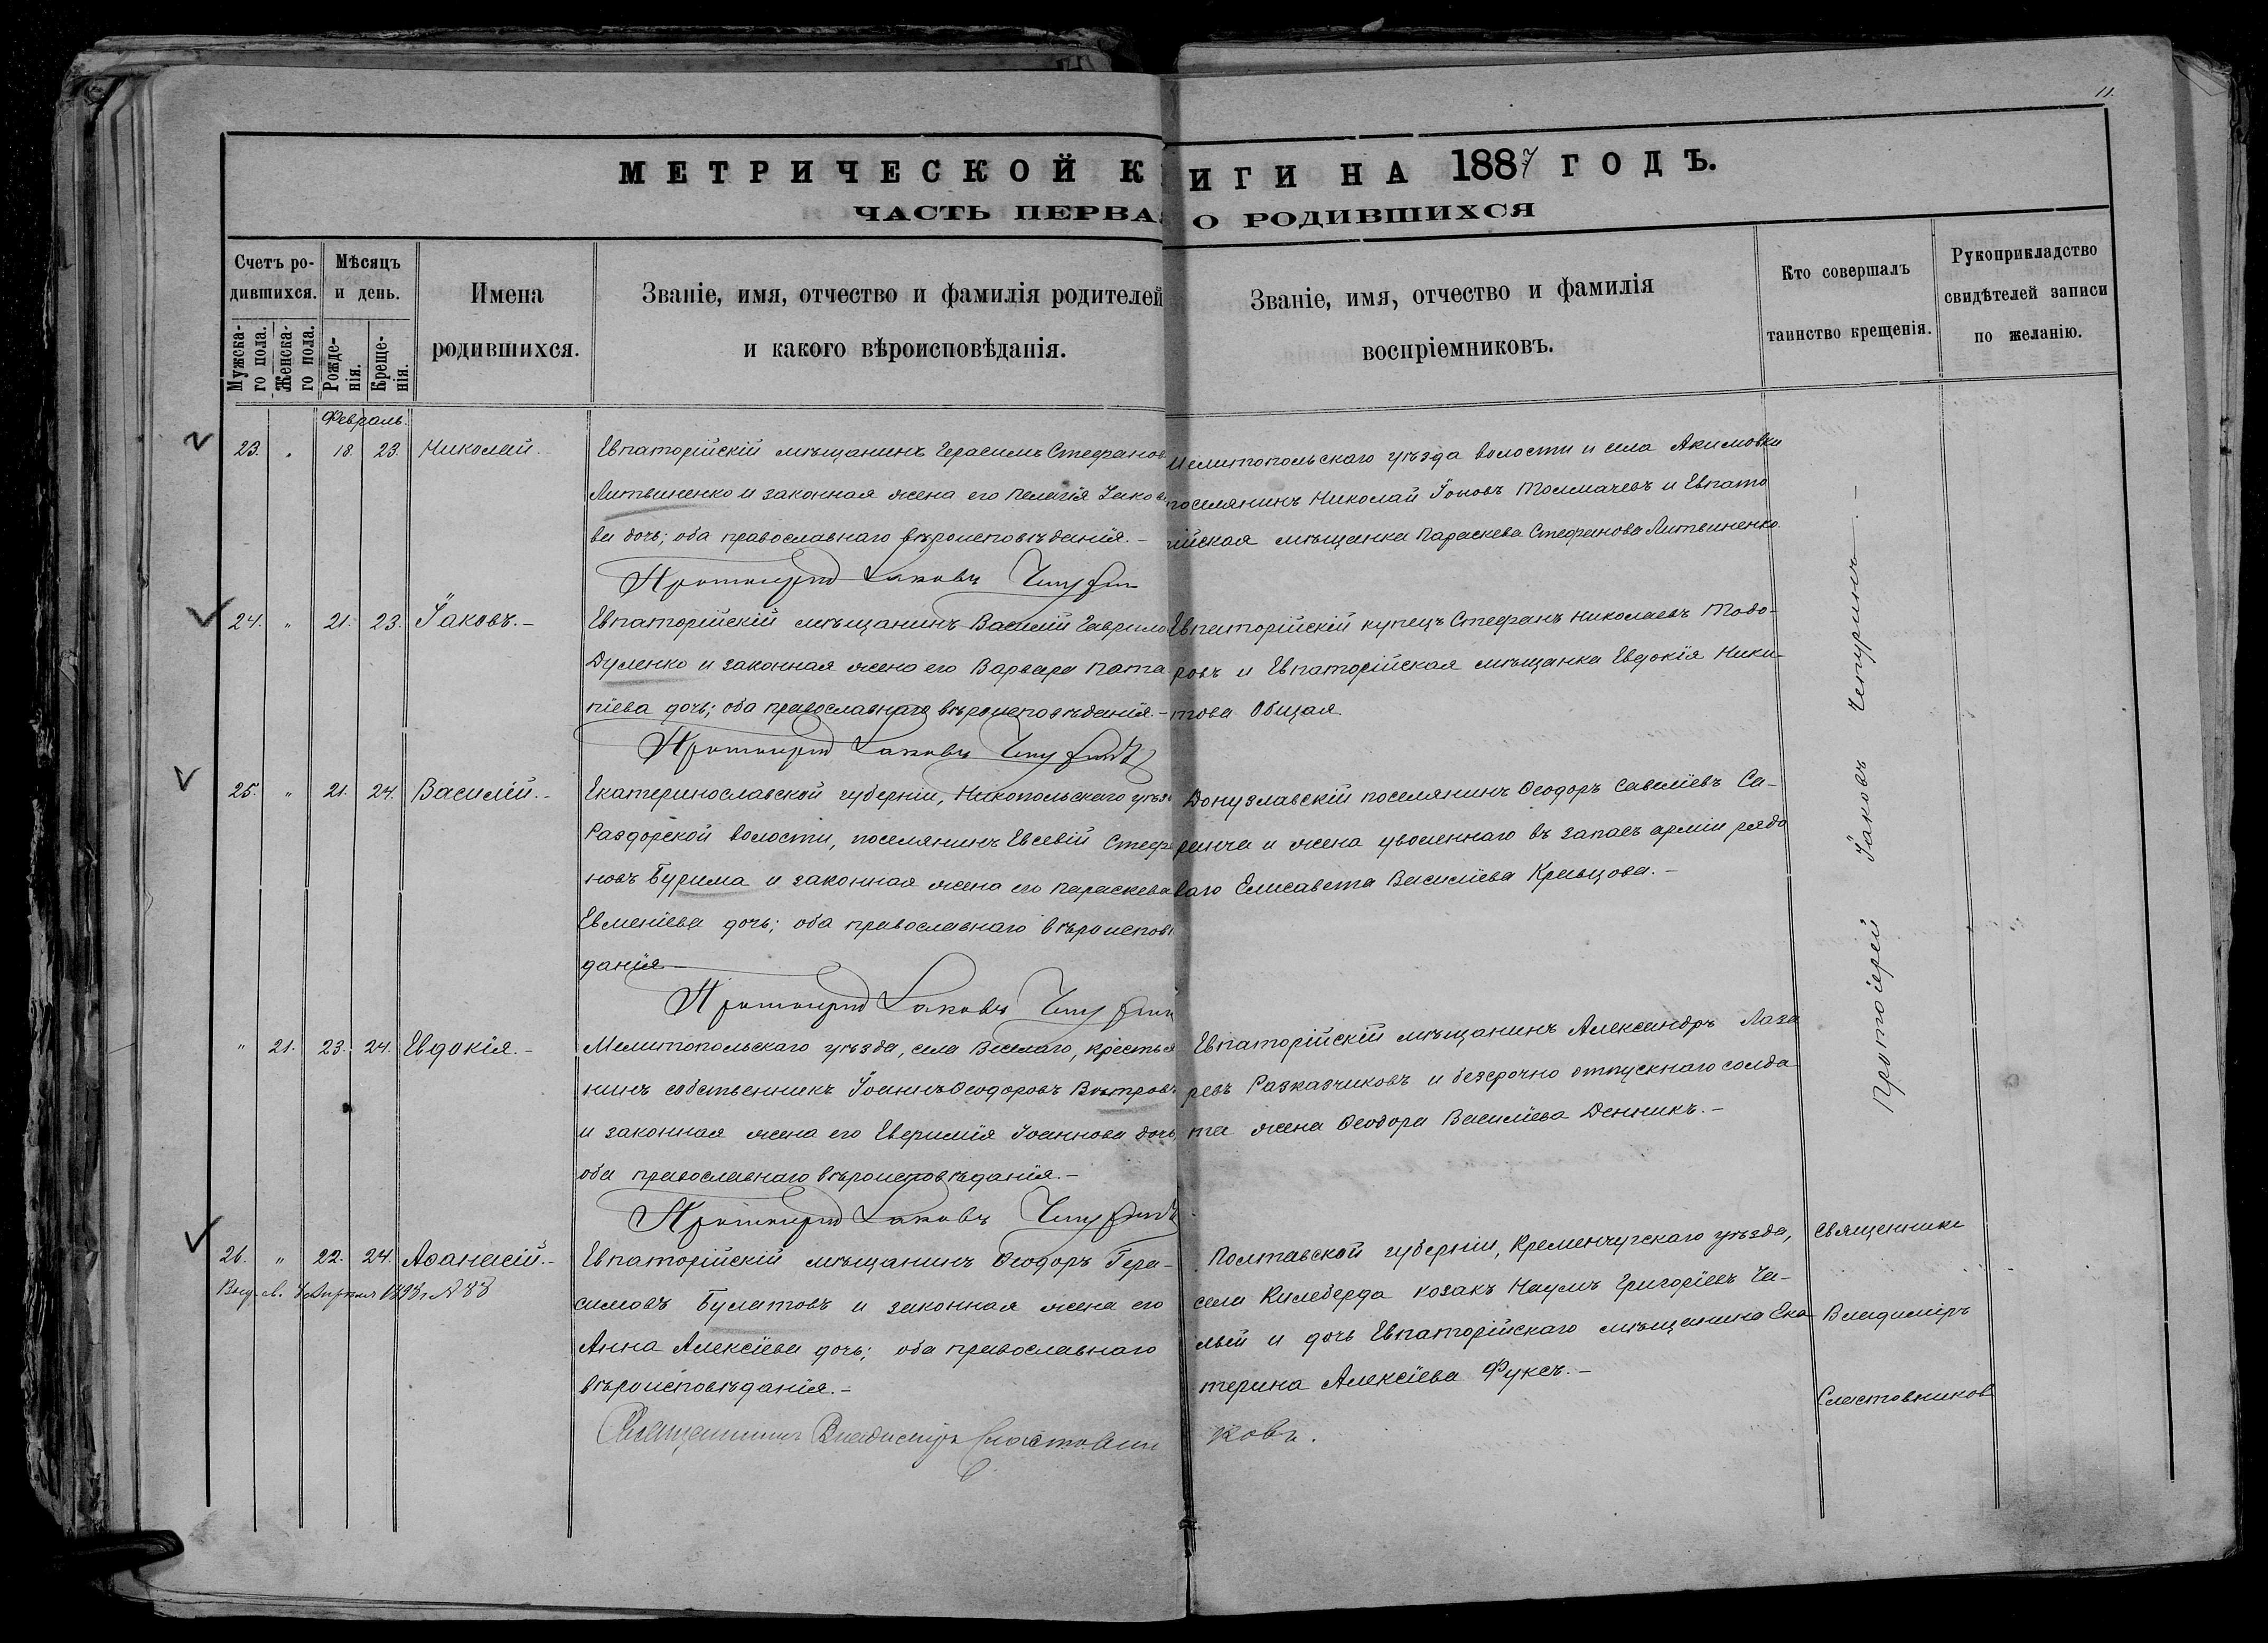 11.
МЕТРИЧЕСКОЙ К ИГИ НА 1887 ГОДЪ.
ЧАСТЬ ПЕРВА О РОДИВШИХСЯ
Счетъ ро-
дившихся.
Мужска-
го пола.
Женска-
го пола.
Мѣсяцъ
и день.
Рожде-
нія.
Креще-
нія.
Имена
родившихся.
Званіе, имя, отчество и фамилія родителей
и какого вѣроисповѣданія.
Званіе, имя, отчество и фамилія
воспріемниковъ.
Кто совершалъ
таинство крещенія.
Рукоприкладство
свидѣтелей записи
по желанію.
Февраль.
23. " 18. 23. Николай.
Евпаторійскій мѣщанинъ Герасимъ Стефанов
Литвиненко и законная жена его Пелагія Іаковле
ва дочь; оба православнаго вѣроисповѣданія.-
Протоіерей Іаковъ Чепурин
Мелитопольскаго уѣзда волости и села Акимовки
поселянинъ Николай Іоновъ Толмачевъ и Евпато
рійская мѣщанка Параскева Стефанова Литвиненко.
24. " 21. 23. Іаковъ.-
Евпаторійскій мѣщанинъ Василій Гаврило
Дуленко и законная жена его Варвара Пата
піева дочь; оба православнаго вѣроисповѣданія.-
Протоіерей Іаковъ Чепуринъ
Евпаторійскій купецъ Стефанъ Николаевъ Тодо-
ровъ и Евпаторійская мѣщанка Евдокія Ники-
това Общая.
25. " 21. 24. Василій.-
Екатеринославской губерніи, Никопольскаго уѣз
Раздорской волости, поселянинъ Евсевій Стефа
новъ Бурима и законная жена его Параскева
Евменіева дочь; оба православнаго вѣроисповѣ
данія.-
Протоіерей Іаковъ Чепурин
Донузлавскій поселянинъ Ѳеодоръ Савеліевъ Са-
ранча и жена уволеннаго въ запасъ арміи рядо
ваго Елисавета Василіева Кравцова.-
" 21. 23. 24. Евдокія.-
Мелитопольскаго уѣзда, села Веселаго, крестья
нинъ собственникъ Іоаннъ Ѳеодоровъ Вѣтровъ
и законная жена его Евфимія Іоаннова дочь,
оба православнаго вѣроисповѣданія.-
Протоіерей Іаковъ Чепуринъ
Евпаторійскій мѣщанинъ Александръ Лаза
ревъ Разказчиковъ и безсрочно отпускнаго солда
та жена Ѳеодора Василіева Денникъ.-
Протоіерей Іаковъ Чепуринъ.-
26. " 22. 24. Аѳанасій.-
Выд. св. 1893 г. № 88
Евпаторійскій мѣщанинъ Ѳеодоръ Гера-
симовъ Булатовъ и законная жена его
Анна Алексіева дочь; оба православнаго
вѣроисповѣданія.-
Священникъ Владиміръ Сластовни ковъ.
Полтавской губерніи, Кременчугскаго уѣзда,
села Килеберда козакъ Наумъ Григоріевъ Ча-
лый и дочь Евпаторійскаго мѣщанина Ека
терина Алексіева Фуксъ.-
Священникъ
Владиміръ
Сластовников